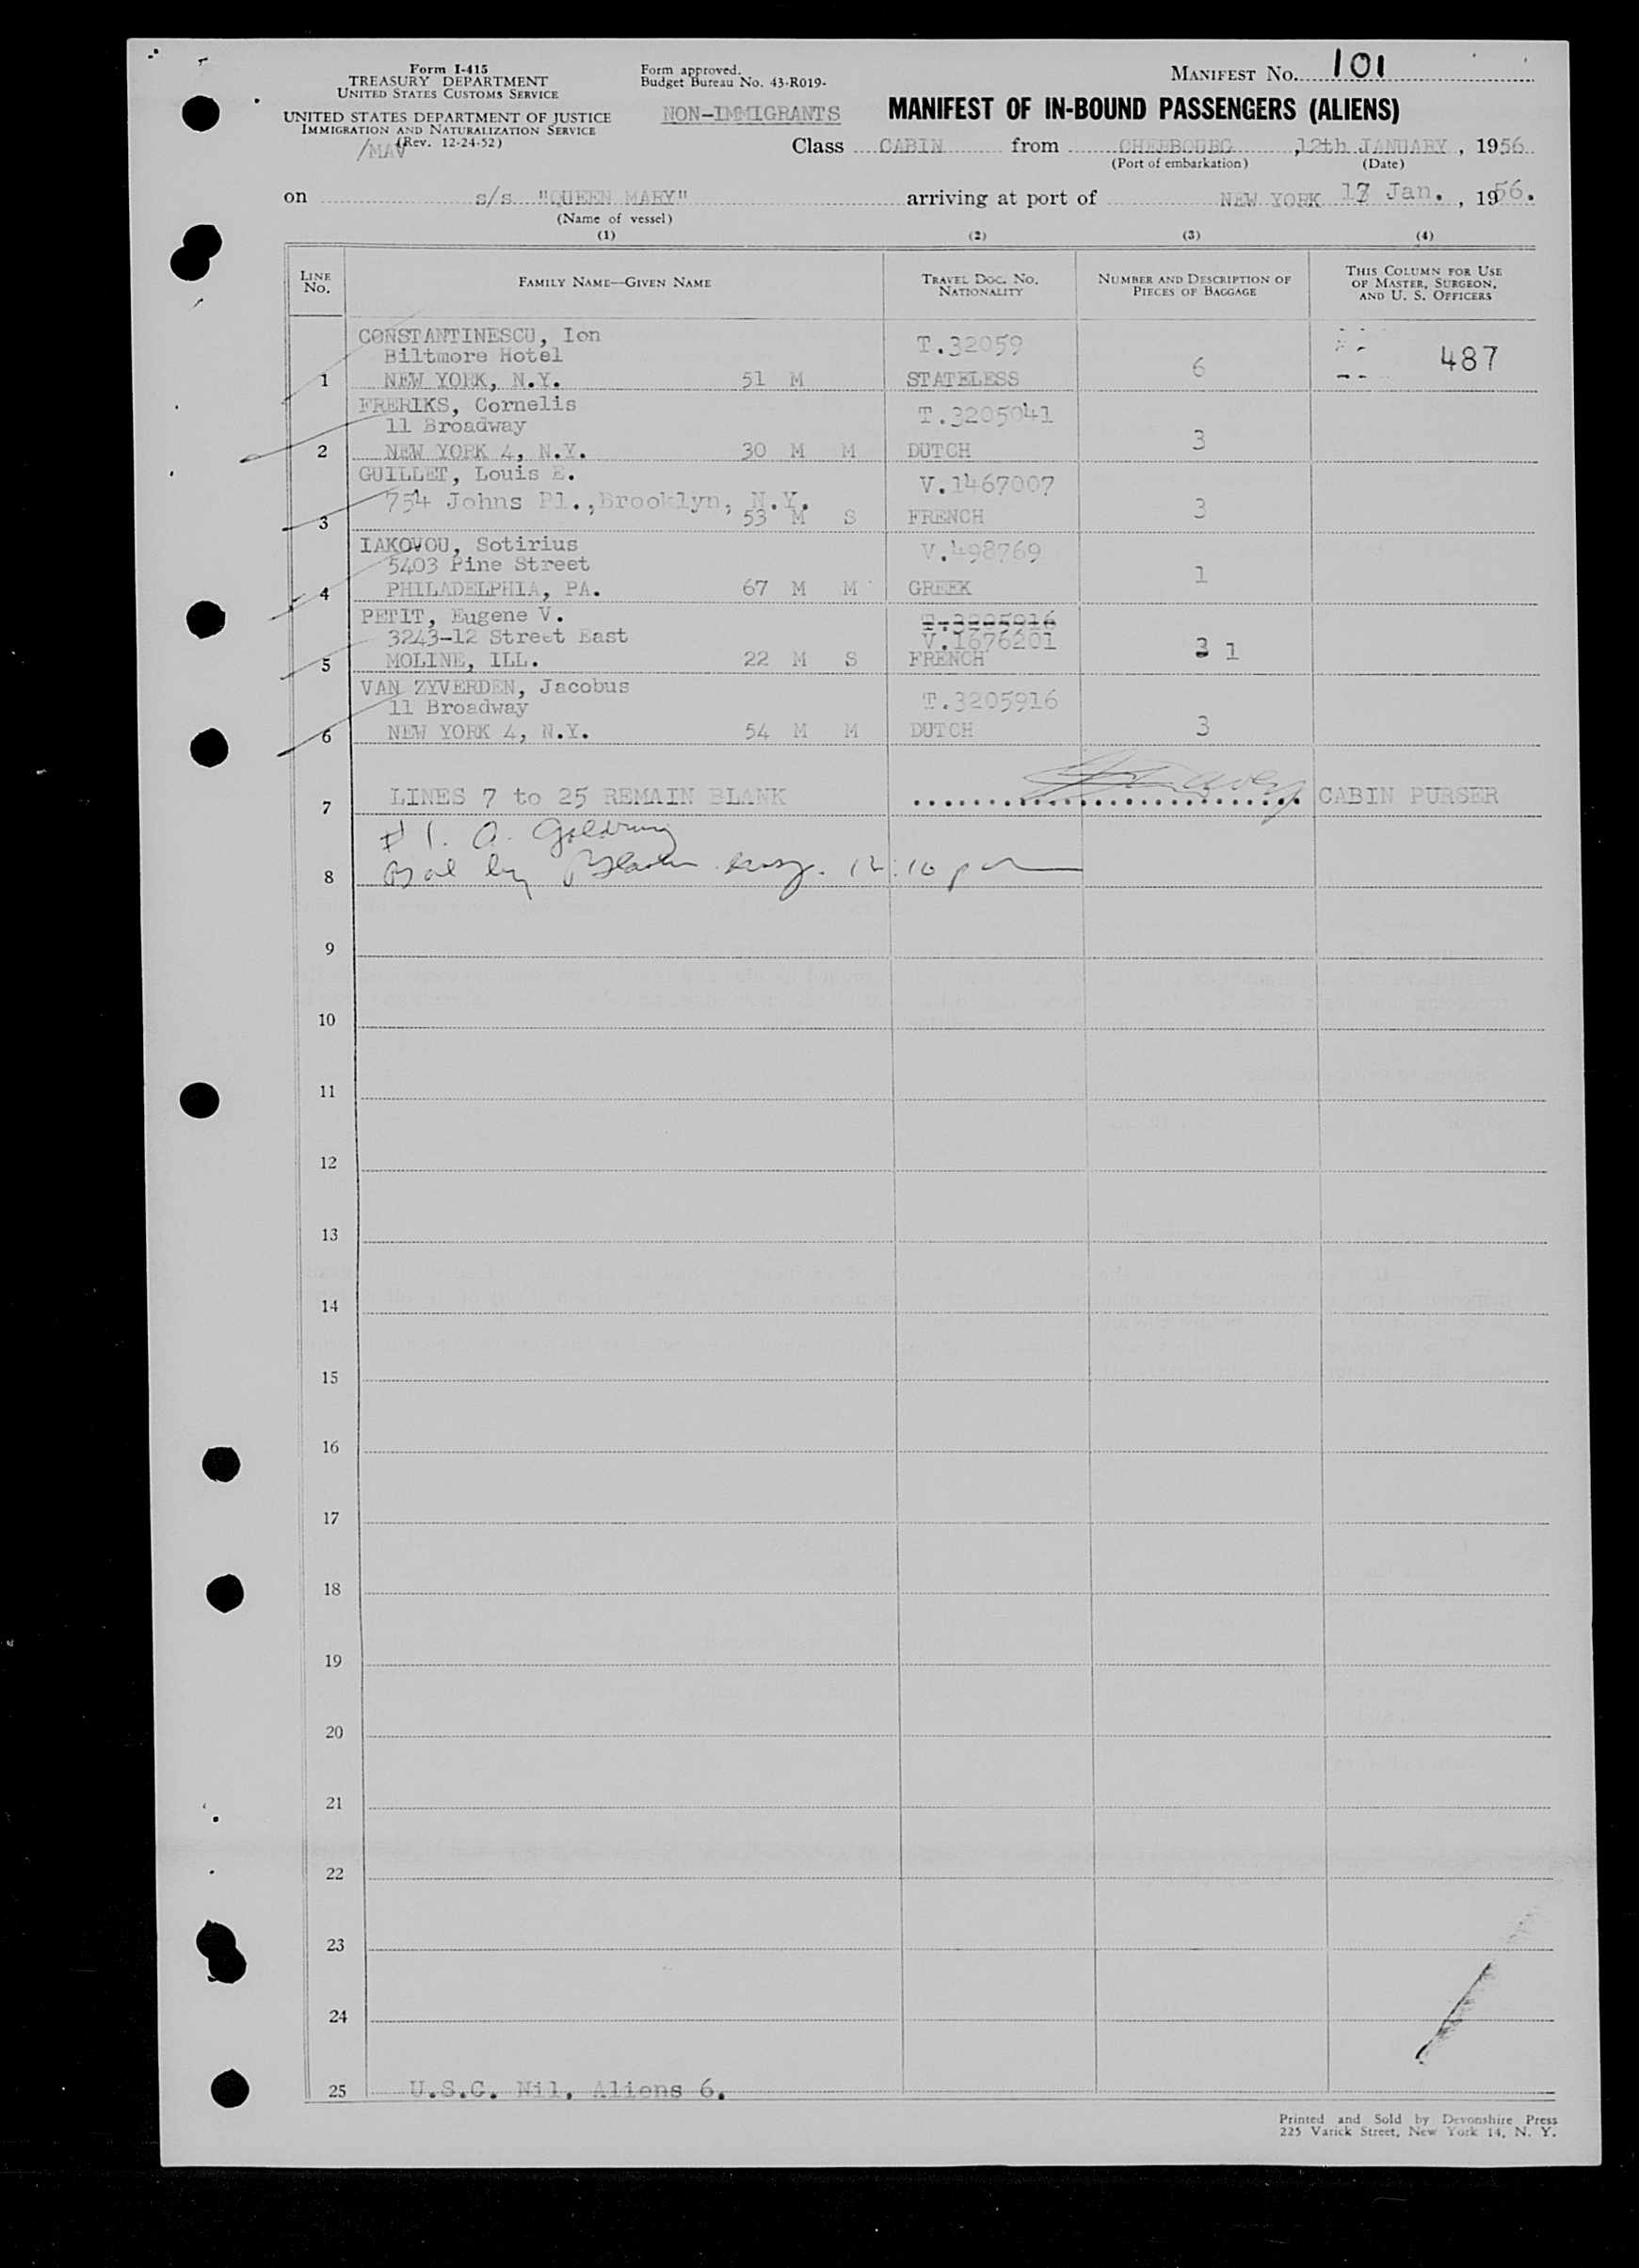 Form I-415
TREASURY DEPARTMENT
UNITED STATES CUSTOMS SERVICE
UNITED STATES DEPARTMENT OF JUSTICE
IMMIGRATION AND NATURALIZATION SERVICE
(Rev. 12-24-52)
/MAV
Form approved.
Budget Bureau No. 43-R019-
NON-IMMIGRANTS
MANIFEST No. 101
MANIFEST OF IN-BOUND PASSENGERS (ALIENS)
Class CABIN from CHERBOURG ,12th JANUARY , 1956.
(Port of embarkation) (Date)
on s/s "QUEEN MARY" arriving at port of NEW YORK 17 Jan. , 1956.
(Name of vessel)
(1) (2) (3) (4)
LINE No. FAMILY NAME—GIVEN NAME TRAVEL DOC. NO. NATIONALITY NUMBER AND DESCRIPTION OF PIECES OF BAGGAGE THIS COLUMN FOR USE OF MASTER, SURGEON, AND U. S. OFFICERS
CONSTANTINESCU, Ion T.32059
Biltmore Hotel 6 487
1 NEW YORK, N.Y. 51 M STATELESS
FRERIKS, Cornelis T.3205041
11 Broadway 3
2 NEW YORK 4, N.Y. 30 M M DUTCH
GUILLET, Louis E. V.1467007
754 Johns Pl.,Brooklyn, N.Y. 3
3 53 M S FRENCH
IAKOVOU, Sotirius V.498769
5403 Pine Street 1
4 PHILADELPHIA, PA. 67 M M GREEK
PETIT, Eugene V. T.3205916
3243-12 Street East V.1676201 3 1
5 MOLINE, ILL. 22 M S FRENCH
VAN ZYVERDEN, Jacobus T.3205916
11 Broadway 3
6 NEW YORK 4, N.Y. 54 M M DUTCH
7 LINES 7 to 25 REMAIN BLANK CABIN PURSER
# 1. A. Goldring
8 by 12:10 pm
9
10
11
12
13
14
15
16
17
18
19
20
21
22
23
24
25 U.S.C. Nil. Aliens 6.
Printed and Sold by Devonshire Press
225 Varick Street, New York 14, N. Y.